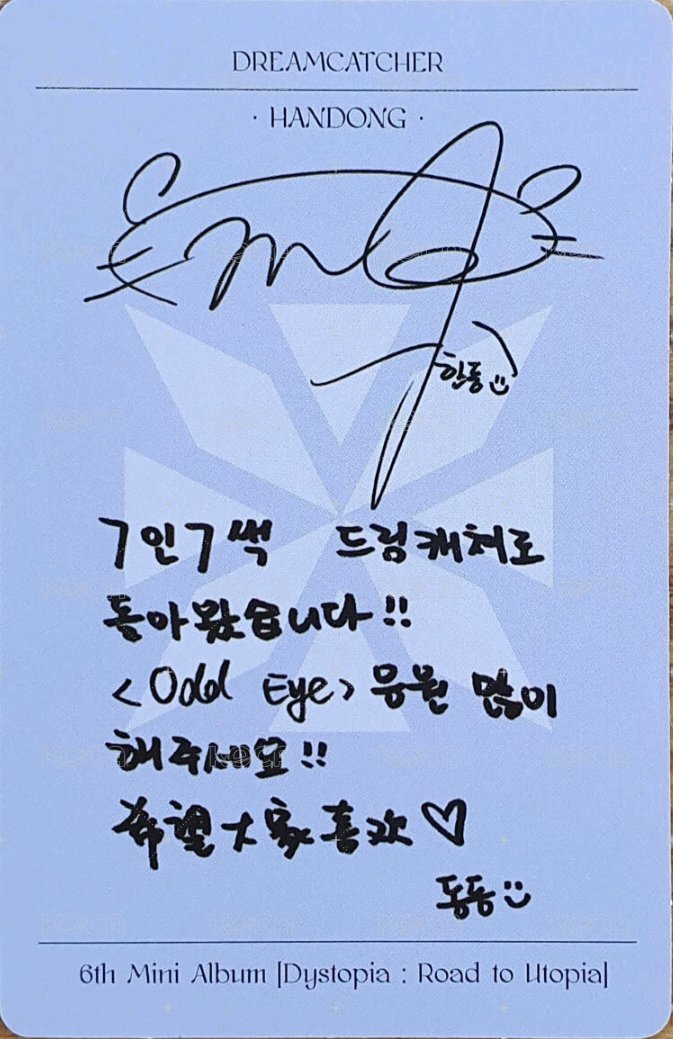 DREAMCATCHER
· HANDONG ·
한동
7인7색 드림캐쳐로
돌아왔습니다!!
<Odd Eye> 응원 많이
해주세요!!
希望大家喜欢♡
동동
6th Mini Album [Dystopia : Road to Utopia]